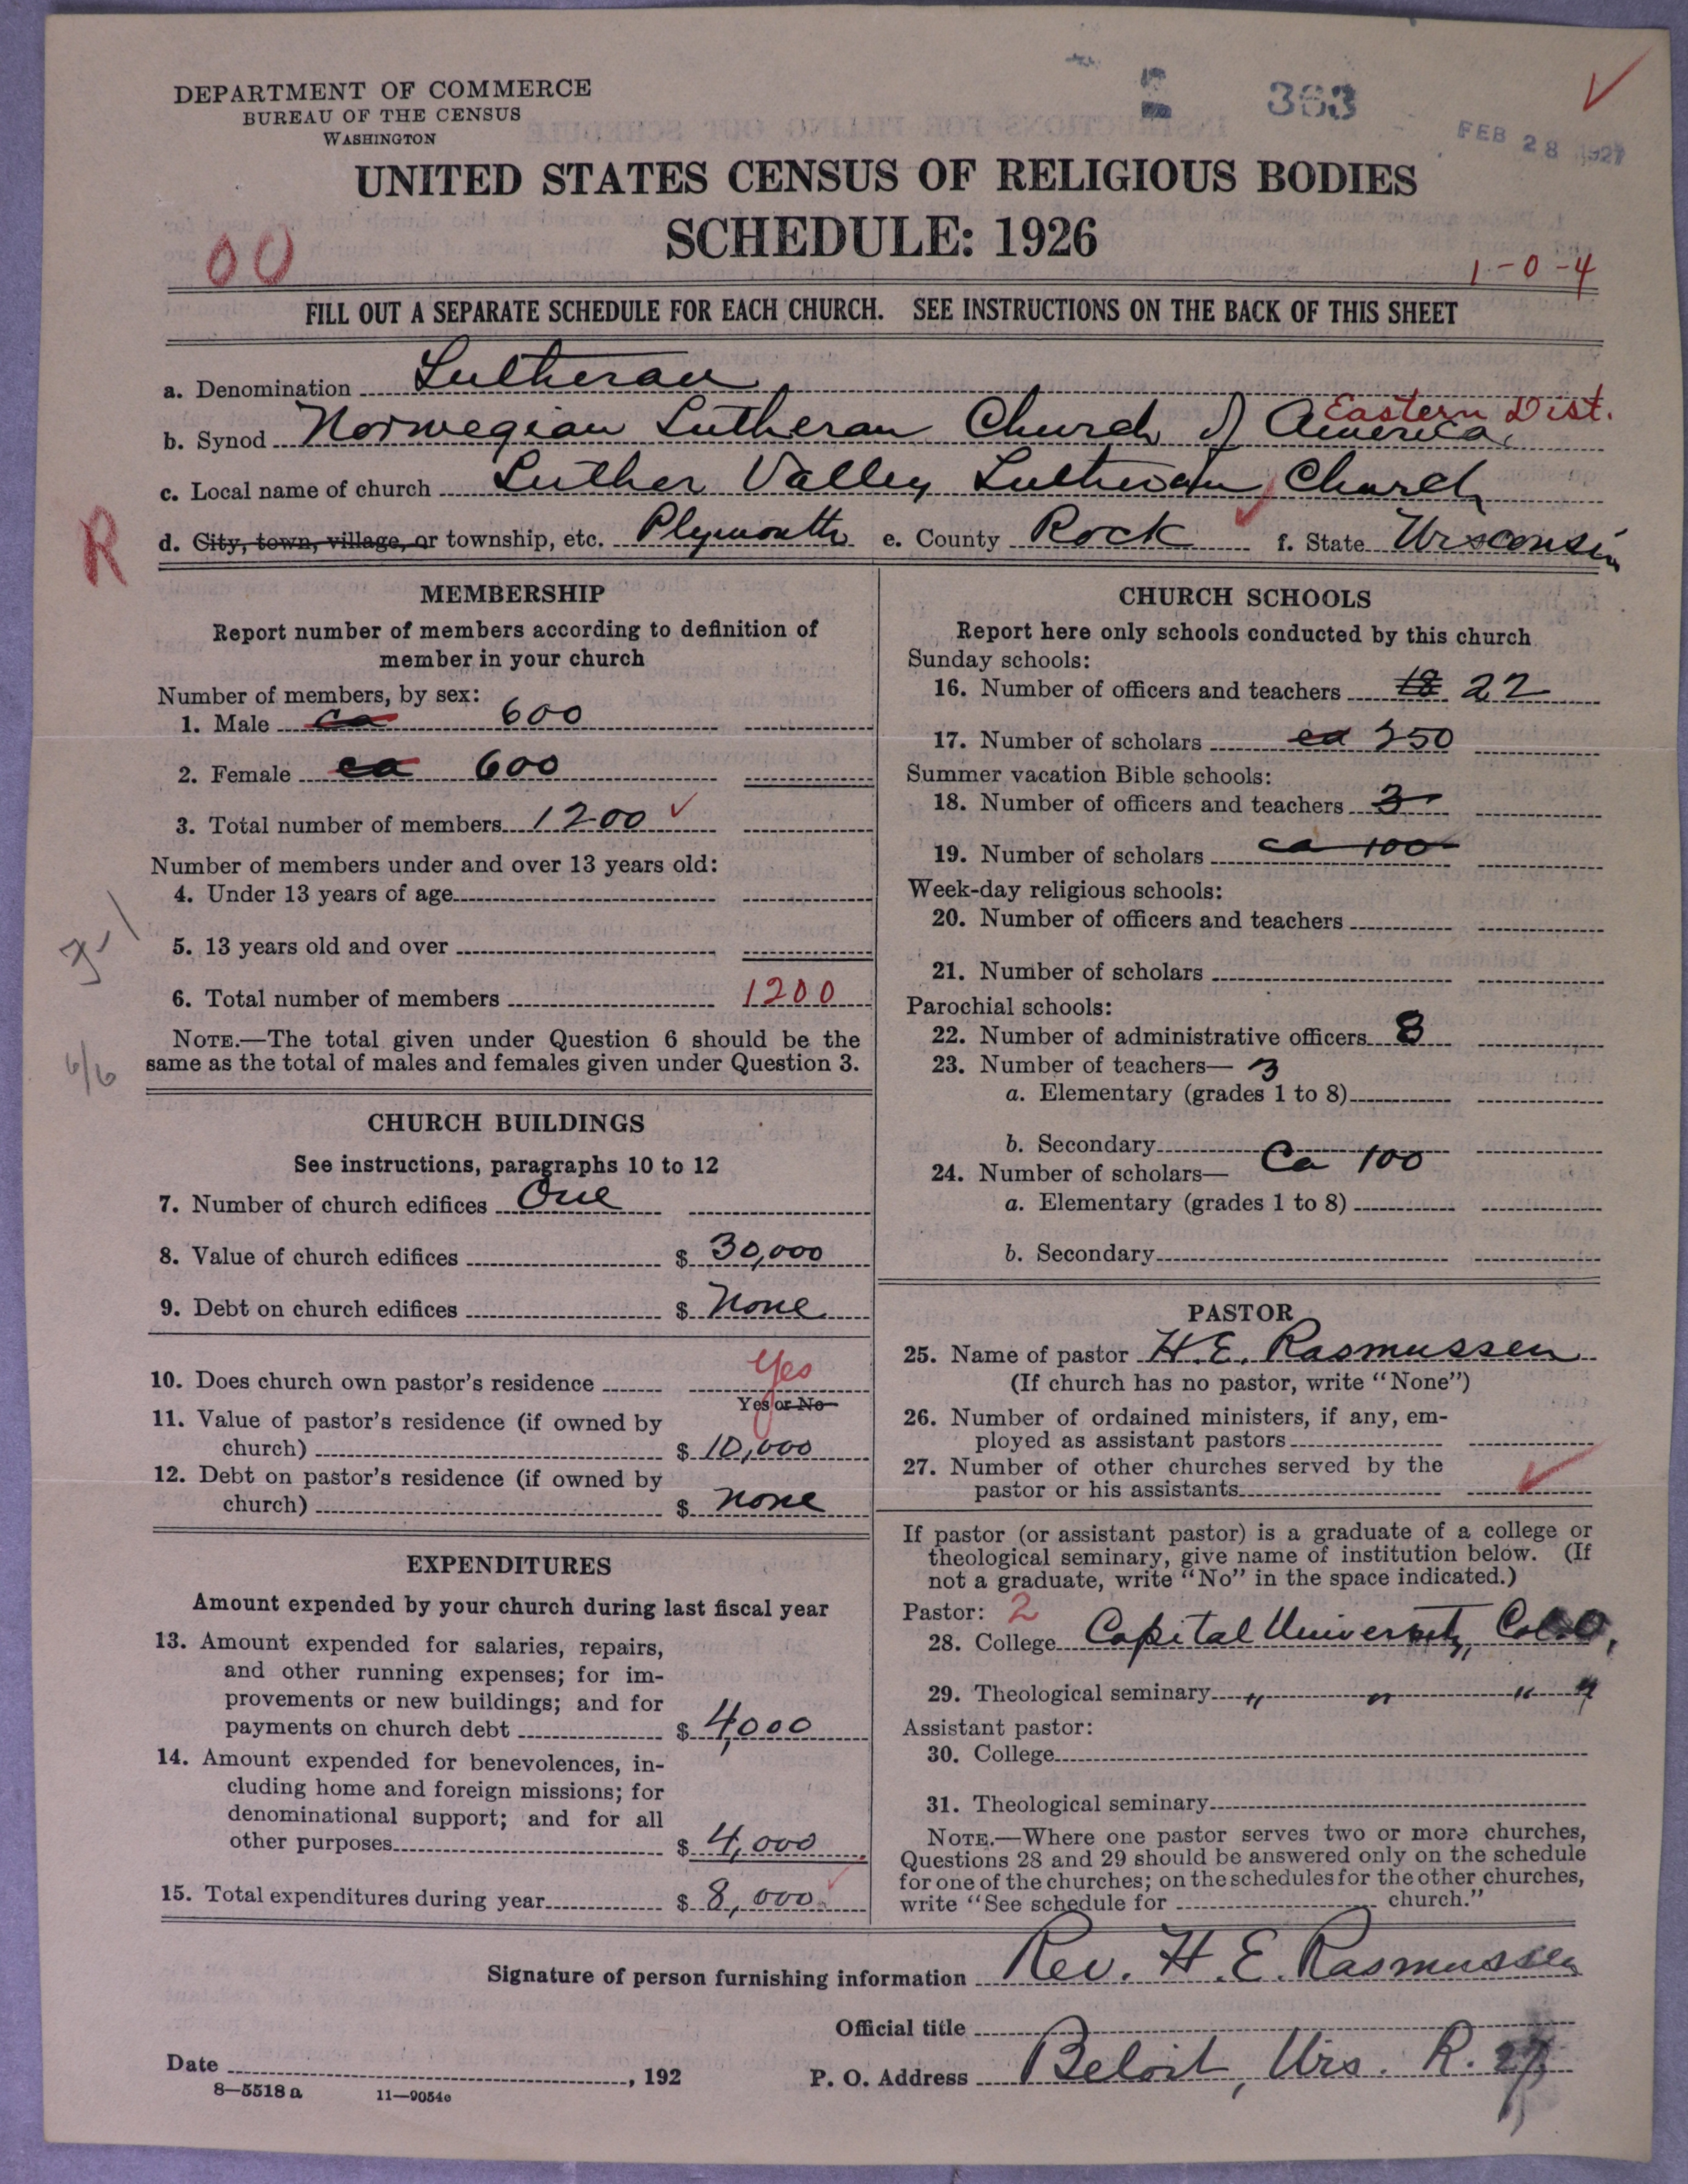 DEPARTMENT OF COMMERCE
BUREAU OF THE CENSUS
WASHINGTON
363
FEB 28 1927
UNITED STATES CENSUS OF RELIGIOUS BODIES
SCHEDULE: 1926
00
1-0-4
FILL OUT A SEPARATE SCHEDULE FOR EACH CHURCH. SEE INSTRUCTIONS ON THE BACK OF THIS SHEET
a. Denomination Lutheran
Eastern Dist.
b. Synod Norwegian Lutheran Church of America,
c. Local name of church Luther Valley Lutheran Church
R
d. City, town, village, or township, etc. Plymouth e. County Rock f. State Wisconsin
MEMBERSHIP
Report number of members according to definition of
member in your church
Number of members, by sex:
1. Male ca 600
2. Female ca 600
3. Total number of members 1200
Number of members under and over 13 years old:
4. Under 13 years of age
5. 13 years old and over
6. Total number of members 1200
NOTE.—The total given under Question 6 should be the
same as the total of males and females given under Question 3.
6/6
CHURCH BUILDINGS
See instructions, paragraphs 10 to 12
7. Number of church edifices One
8. Value of church edifices $ 30,000
9. Debt on church edifices $ None
10. Does church own pastor's residence Yes
Yes or No
11. Value of pastor's residence (if owned by
church) $ 10,000
12. Debt on pastor's residence (if owned by
church) $ none
EXPENDITURES
Amount expended by your church during last fiscal year
13. Amount expended for salaries, repairs,
and other running expenses; for im-
provements or new buildings; and for
payments on church debt $ 4,000
14. Amount expended for benevolences, in-
cluding home and foreign missions; for
denominational support; and for all
other purposes $ 4,000
15. Total expenditures during year $ 8,000
CHURCH SCHOOLS
Report here only schools conducted by this church
Sunday schools:
16. Number of officers and teachers 18 22
17. Number of scholars ca 250
Summer vacation Bible schools:
18. Number of officers and teachers 3
19. Number of scholars ca 100
Week-day religious schools:
20. Number of officers and teachers
21. Number of scholars
Parochial schools:
22. Number of administrative officers 8
23. Number of teachers— 3
a. Elementary (grades 1 to 8)
b. Secondary
24. Number of scholars— Ca 100
a. Elementary (grades 1 to 8)
b. Secondary
PASTOR
25. Name of pastor H. E. Rasmussen
(If church has no pastor, write "None")
26. Number of ordained ministers, if any, em-
ployed as assistant pastors
27. Number of other churches served by the
pastor or his assistants
If pastor (or assistant pastor) is a graduate of a college or
theological seminary, give name of institution below. (If
not a graduate, write "No" in the space indicated.)
Pastor: 2
28. College Capital University, Col. O,
29. Theological seminary " " " "
Assistant pastor:
30. College
31. Theological seminary
NOTE.—Where one pastor serves two or more churches,
Questions 28 and 29 should be answered only on the schedule
for one of the churches; on the schedules for the other churches,
write "See schedule for church."
Signature of person furnishing information Rev. H. E. Rasmussen
Official title
Date , 192
P. O. Address Beloit, Wis. R. 27
8—5518 a 11—9054c